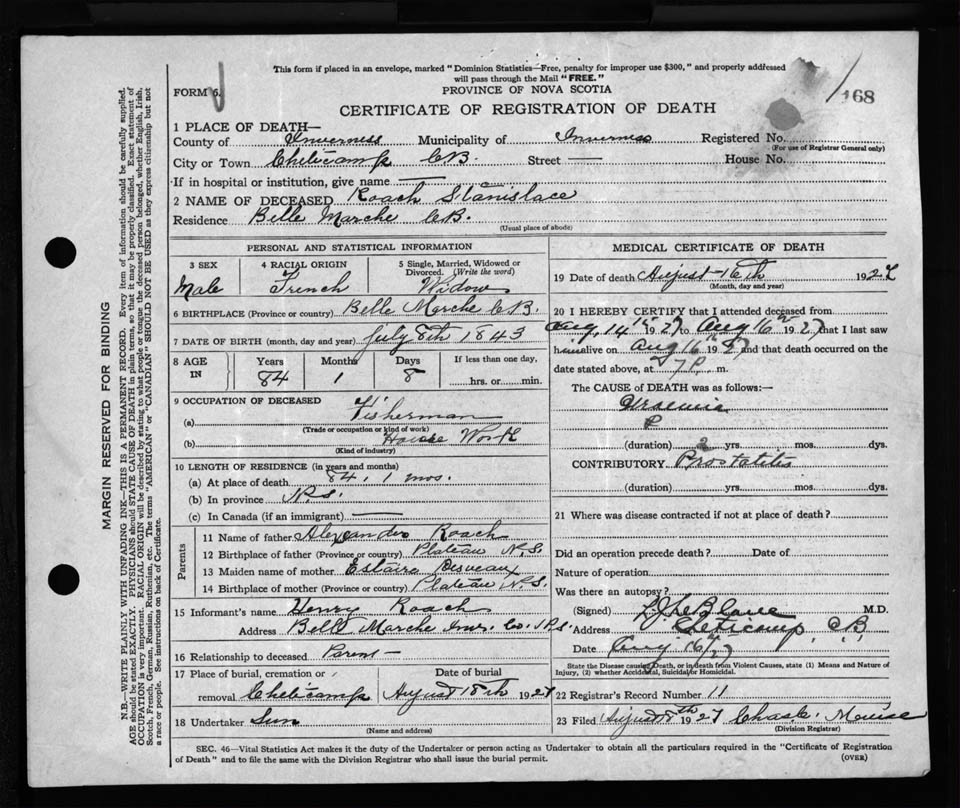 This form if placed in an envelope, marked "Dominion Statistics—Free, penalty for improper use $300," and properly addressed
will pass through the Mail "FREE."
FORM 6.
PROVINCE OF NOVA SCOTIA
168
CERTIFICATE OF REGISTRATION OF DEATH
1 PLACE OF DEATH—
County of Inverness Municipality of Inverness Registered No.
(For use of Registrar General only)
City or Town Cheticamp CB. Street — House No.
If in hospital or institution, give name —
2 NAME OF DECEASED Roach Stanislace
Residence Belle Marche CB.
(Usual place of abode)
PERSONAL AND STATISTICAL INFORMATION
3 SEX 4 RACIAL ORIGIN 5 Single, Married, Widowed or Divorced. (Write the word)
Male French Widow
6 BIRTHPLACE (Province or country) Belle Marche CB.
7 DATE OF BIRTH (month, day and year) July 8th 1843
8 AGE IN Years Months Days If less than one day,
84 1 8 hrs. or min.
9 OCCUPATION OF DECEASED
(a) Fisherman
(Trade or occupation or kind of work)
(b) House Work
(Kind of industry)
10 LENGTH OF RESIDENCE (in years and months)
(a) At place of death 84, 1 mos.
(b) In province N.S.
(c) In Canada (if an immigrant) —
Parents
11 Name of father Alexander Roach
12 Birthplace of father (Province or country) Plateau N.S.
13 Maiden name of mother Desveaux
14 Birthplace of mother (Province or country) Plateau N.S.
15 Informant's name Henry Roach
Address Belle Marche Inv. Co. N.S.
16 Relationship to deceased Parent
17 Place of burial, cremation or removal Cheticamp Date of burial August 18th 1927
18 Undertaker Son
(Name and address)
MEDICAL CERTIFICATE OF DEATH
19 Date of death August 16th 1927
(Month, day and year)
20 I HEREBY CERTIFY that I attended deceased from
Aug. 14 1927 to Aug 16 1927 that I last saw
him alive on Aug 16 1927 and that death occurred on the
date stated above, at 7 P. m.
The CAUSE OF DEATH was as follows:—
Uraemia
(duration) 2 yrs. mos. ds.
CONTRIBUTORY Prostatitis
(duration) yrs. mos. ds.
21 Where was disease contracted if not at place of death?
Did an operation precede death? Date of
Nature of operation
Was there an autopsy?
(Signed) L. J. LeBlanc M.D.
Address Cheticamp, CB
Date Aug 16/27
State the Disease causing Death, or in death from Violent Causes, state (1) Means and Nature of
Injury, (2) whether Accidental, Suicidal or Homicidal.
22 Registrar's Record Number 11
23 Filed August 18th 1927
(Division Registrar)
SEC. 46—Vital Statistics Act makes it the duty of the Undertaker or person acting as Undertaker to obtain all the particulars required in the "Certificate of Registration
of Death" and to file the same with the Division Registrar who shall issue the burial permit.
(OVER)
MARGIN RESERVED FOR BINDING
N.B.—WRITE PLAINLY WITH UNFADING INK—THIS IS A PERMANENT RECORD. Every item of information should be carefully supplied.
AGE should be stated EXACTLY. PHYSICIANS should STATE CAUSE OF DEATH in plain terms, so that it may be properly classified. Exact statement of
OCCUPATION is very important. RACIAL ORIGIN will be described by stating to what people or tongue the deceased person belonged, whether English, Irish,
Scotch, French, German, Russian, Ruthenian, etc. The terms "AMERICAN" or "CANADIAN" SHOULD NOT BE USED as they express citizenship but not
a race or people. See instructions on back of Certificate.